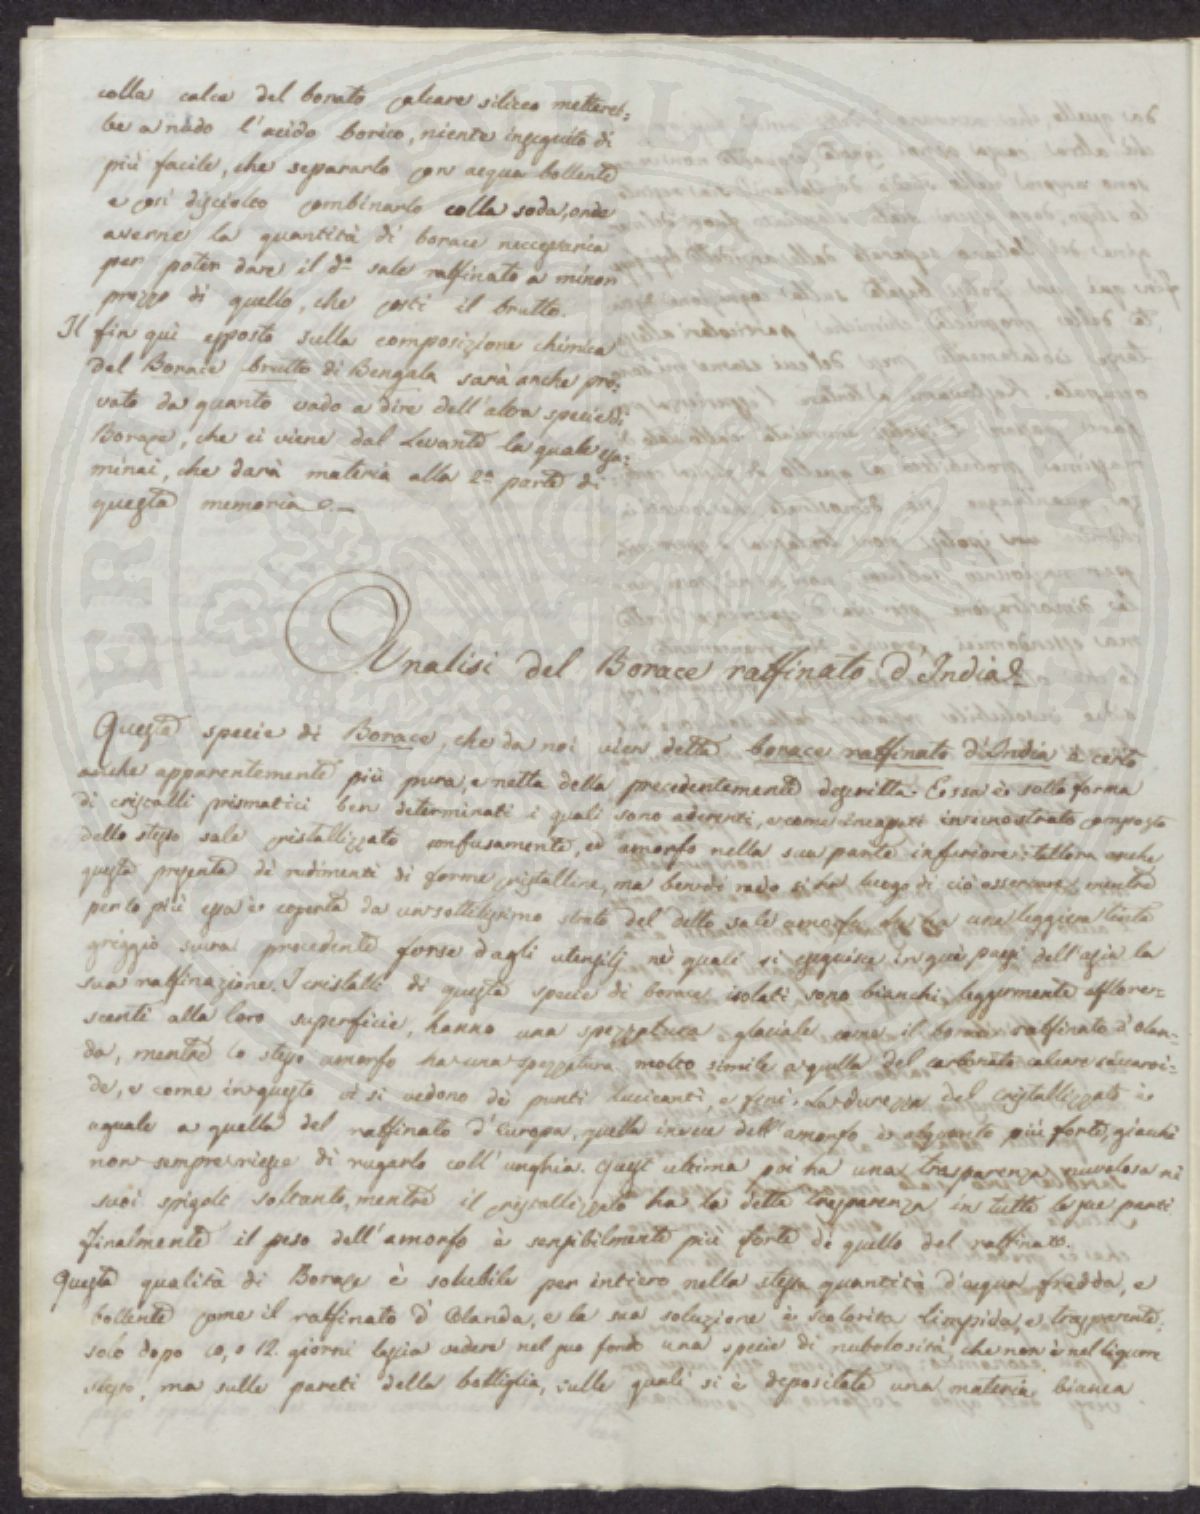 colla calce del borato calcare siliceo mettereb=
be a nudo l'acido borico, niente inseguito di
più facile, che separarlo con acqua bollente
e così disciolto combinarlo colla soda, onde
averne la quantità di borace neccessaria
per poter dare il d.º sale raffinato a minor
prezzo di quello, che costi il brutto.
Il fin quì esposto sulla composizione chimica
del Borace brutto di Bengala sarà anche pro=
vato da quanto vado a dire dell'altra specie di
Borace, che ci viene dal Levante la quale esa=
minai, che darà materia alla 2.ª parte di
questa memoria.
Analisi del Borace raffinato d'India
Questa specie di Borace, che da noi vien detta borace raffinato d'India è certo
anche apparentemente più pura, e netta della precedentemente descritta. Essa è sotto forma
di cristalli prismatici ben determinati i quali sono aderenti, e come incapati in un strato composto
dello stesso sale cristallizzato confusamente, ed amorfo nella sua parte inferiore: tallora anche
questa presenta dè rudimenti di forme cristalline, ma bensì rado si ha luogo di ciò osservare, mentre
per lo più essa è coperta da un sottilissimo strato del detto sale amorfo, ha una leggiera tinta
griggio scura procedente forse dagli utensilj nè quali si eseguisce in què paesi dell'asia la
sua raffinazione. I cristalli di questa specie di borace isolati sono bianchi, leggermente efflore=
scenti alla loro superficie, hanno una spezzatura glaciale come il borace raffinato d'olan=
da, mentre lo stesso amorfo ha una spezzatura molto simile a quella del carbonato calcare saccaroi=
de, e come in questo vi si vedono dè punti lucicanti, e fini. La durezza del cristallizzato è
uguale a quella del raffinato d'Europa, quella invece dell'amorfo è alquanto più forte, giacchè
non sempre riesce di rugarlo coll'unghia. Quest'ultima poi ha una trasparenza nuvolosa nè
suoi spigoli soltanto, mentre il cristallizzato ha la detta trasparenza in tutte le sue parti
Finalmente il peso dell'amorfo è sensibilmente più forte di quello del raffinato.
Questa qualità di Borace è solubile per intiero nella stessa quantità d'acqua fredda, e
bollente come il raffinato d'Olanda, e la sua soluzione è scolorita limpida, e trasparente;
solo dopo 10, o 12. giorni lascia vedere nel suo fondo una specie di nubolosità, che non è nel liquore
stesso, ma sulle pareti della bottiglia, sulle quali si è depositata una materia bianca